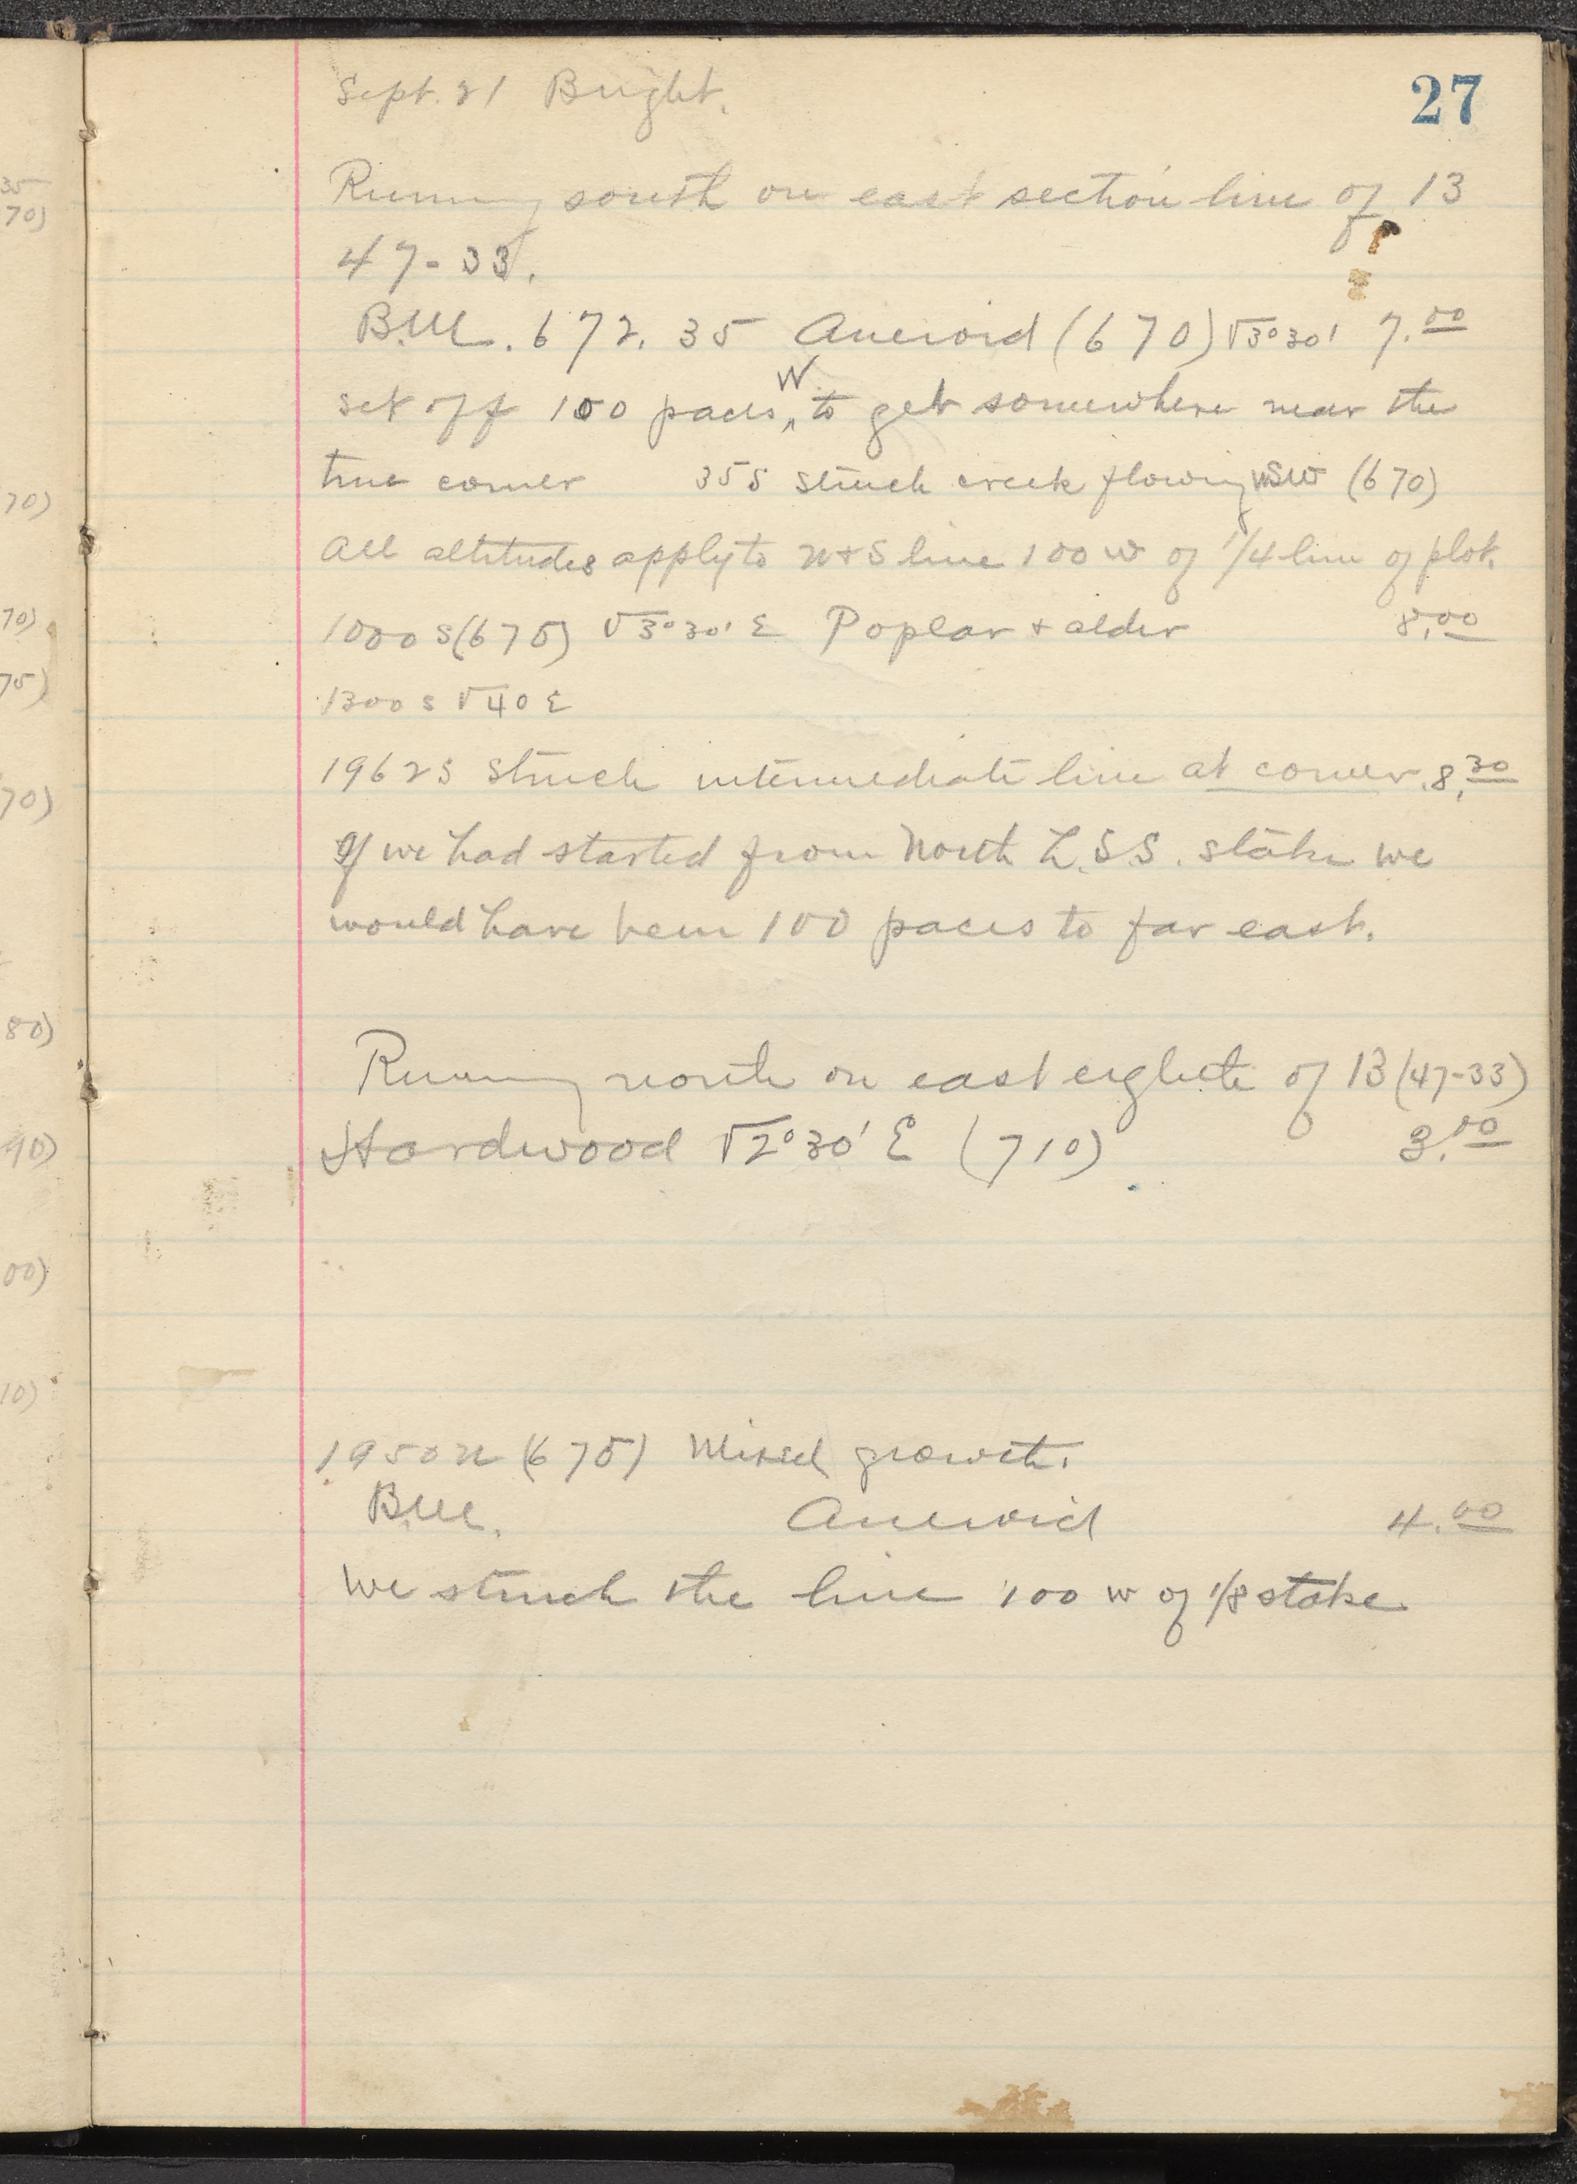 27
Sept. 21 Bright.
Running south on east section line of 13
47-33.
B.M. 672.35 Aneroid (670) V3°30' 7.00
set off 100 paces W to get somewhere near the
true corner 35 S struck creek flowing WSW (670)
All altitudes apply to N & S line 100 W of 1/4 line of plot.
1000 S (675) V3°30' E Poplar & alder 8.00
1300 S V 4° E
1962 S struck intermediate line at corner. 8.30
If we had started from North L.S.S. stake we
would have been 100 paces to far east.
Running north on east eighth of 13 (47-33)
Hardwood V2°30' E (710) 3.00
1950 N (675) Mixed growth.
B.M. Aneroid 4.00
We struck the line 100 W of 1/8 stake.
35
70)
70)
70)
75)
70)
80)
90)
00)
10)